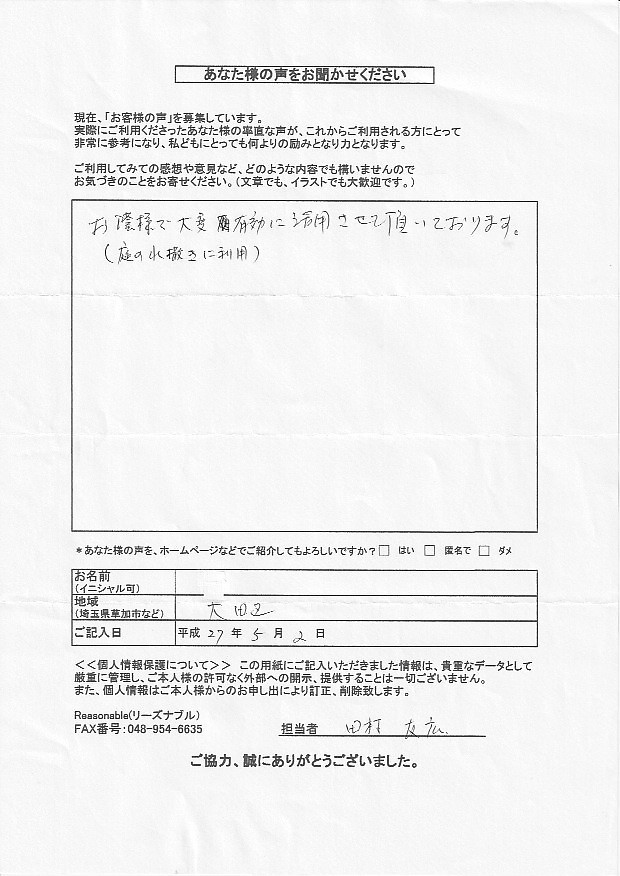 あなた様の声をお聞かせください
現在、「お客様の声」を募集しています。
実際にご利用くださったあなた様の率直な声が、これからご利用される方にとって
非常に参考になり、私どもにとっても何よりの励みとなり力となります。
ご利用してみての感想や意見など、どのような内容でも構いませんので
お気づきのことをお寄せください。（文章でも、イラストでも大歓迎です。）
お陰様で大変有効に活用させて頂いております。
（庭の水撒きに利用）
＊あなた様の声を、ホームページなどでご紹介してもよろしいですか？□ はい □ 匿名で □ ダメ
お名前
（イニシャル可）
地域
（埼玉県草加市など） 大田区
ご記入日 平成 27 年 5 月 2 日
＜＜個人情報保護について＞＞ この用紙にご記入いただきました情報は、貴重なデータとして
厳重に管理し、ご本人様の許可なく外部への開示、提供することは一切ございません。
また、個人情報はご本人様からのお申し出により訂正、削除致します。
Reasonable（リーズナブル）
FAX番号：048-954-6635 担当者 田村 友広
ご協力、誠にありがとうございました。